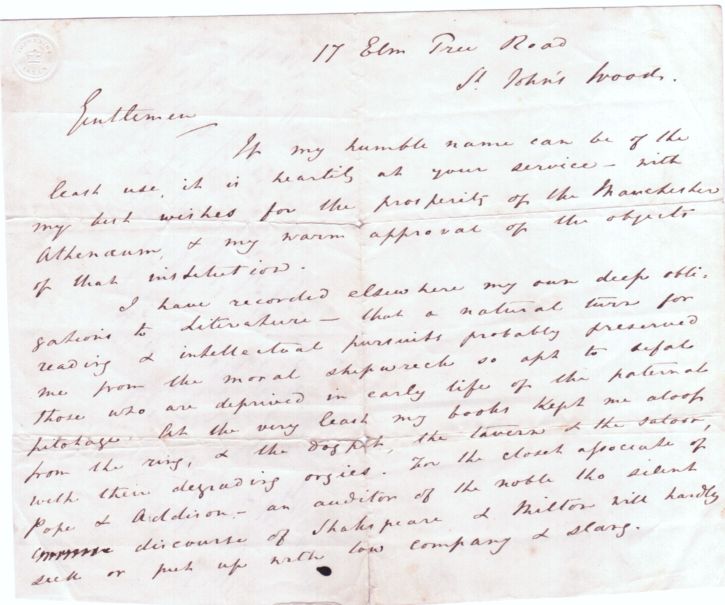 17 Elm Tree Road
St. John's Wood.
Gentlemen
If my humble name can be of the
least use, it is heartily at your service – with
my best wishes for the prosperity of the Manchester
Athenæum, & my warm approval of the objects
of that institution.
I have recorded elsewhere my own deep obli-
gations to Literature – that a natural turn for
reading & intellectual pursuits probably preserved
me from the moral shipwreck so apt to befal
those who are deprived in early life of the paternal
pilotage. At the very least my books kept me aloof
from the ring, & the dogpit, the tavern & the saloon,
with their degrading orgies. For the closet associate of
Pope & Addison – an auditor of the noble tho silent
discourse of Shakspeare & Milton will hardly
seek or put up with low company & slang.